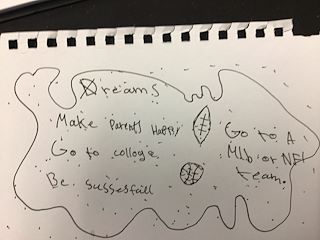 Dreams
Make Parents Happy
Go to colloge
Be sussesfull
Go to A
Mlb or NFl
team.